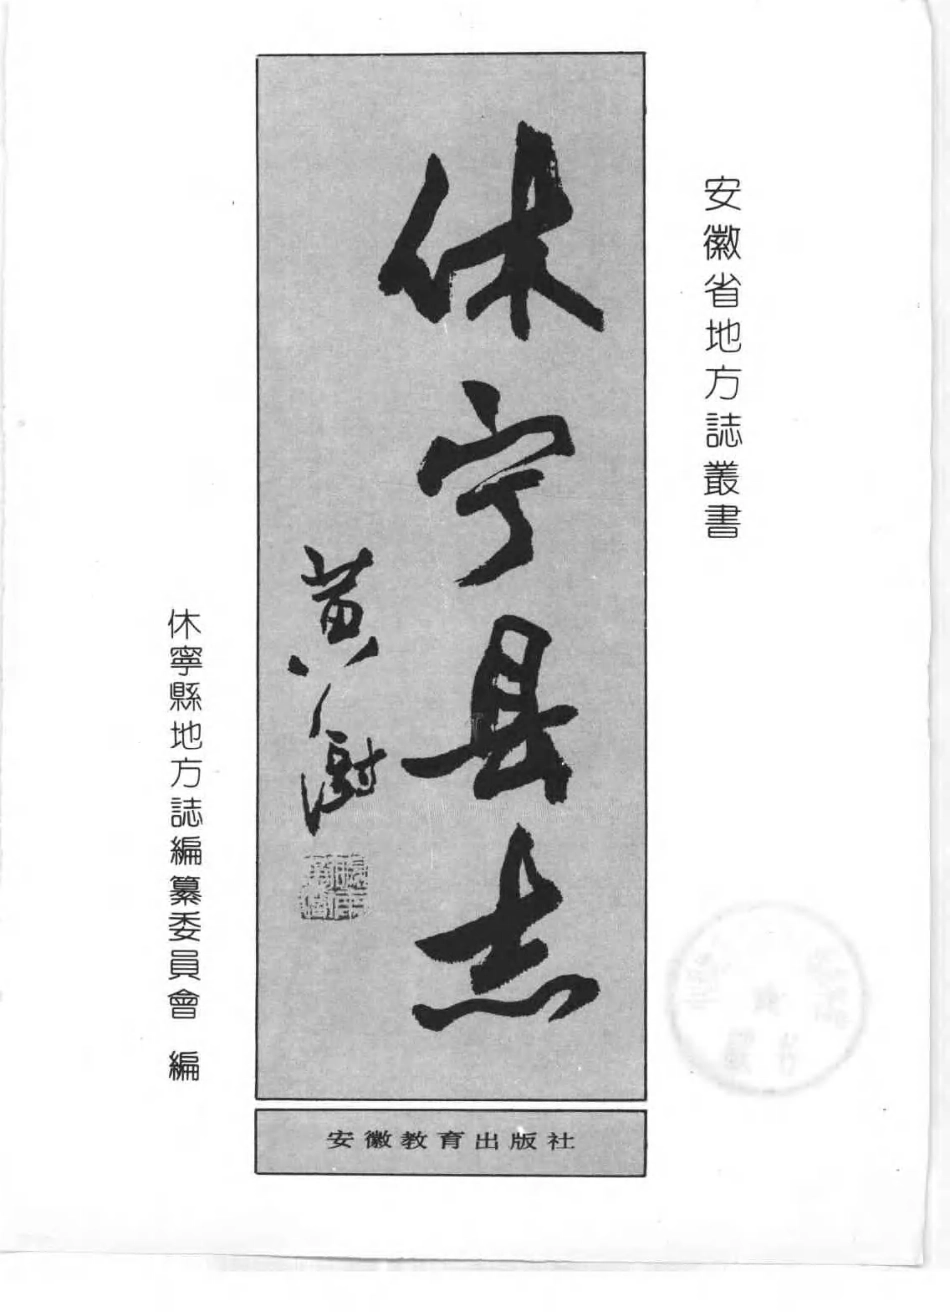 安徽省地方誌叢書
休宁县志
黄澍
休寧縣地方誌編纂委員會　編
安徽教育出版社